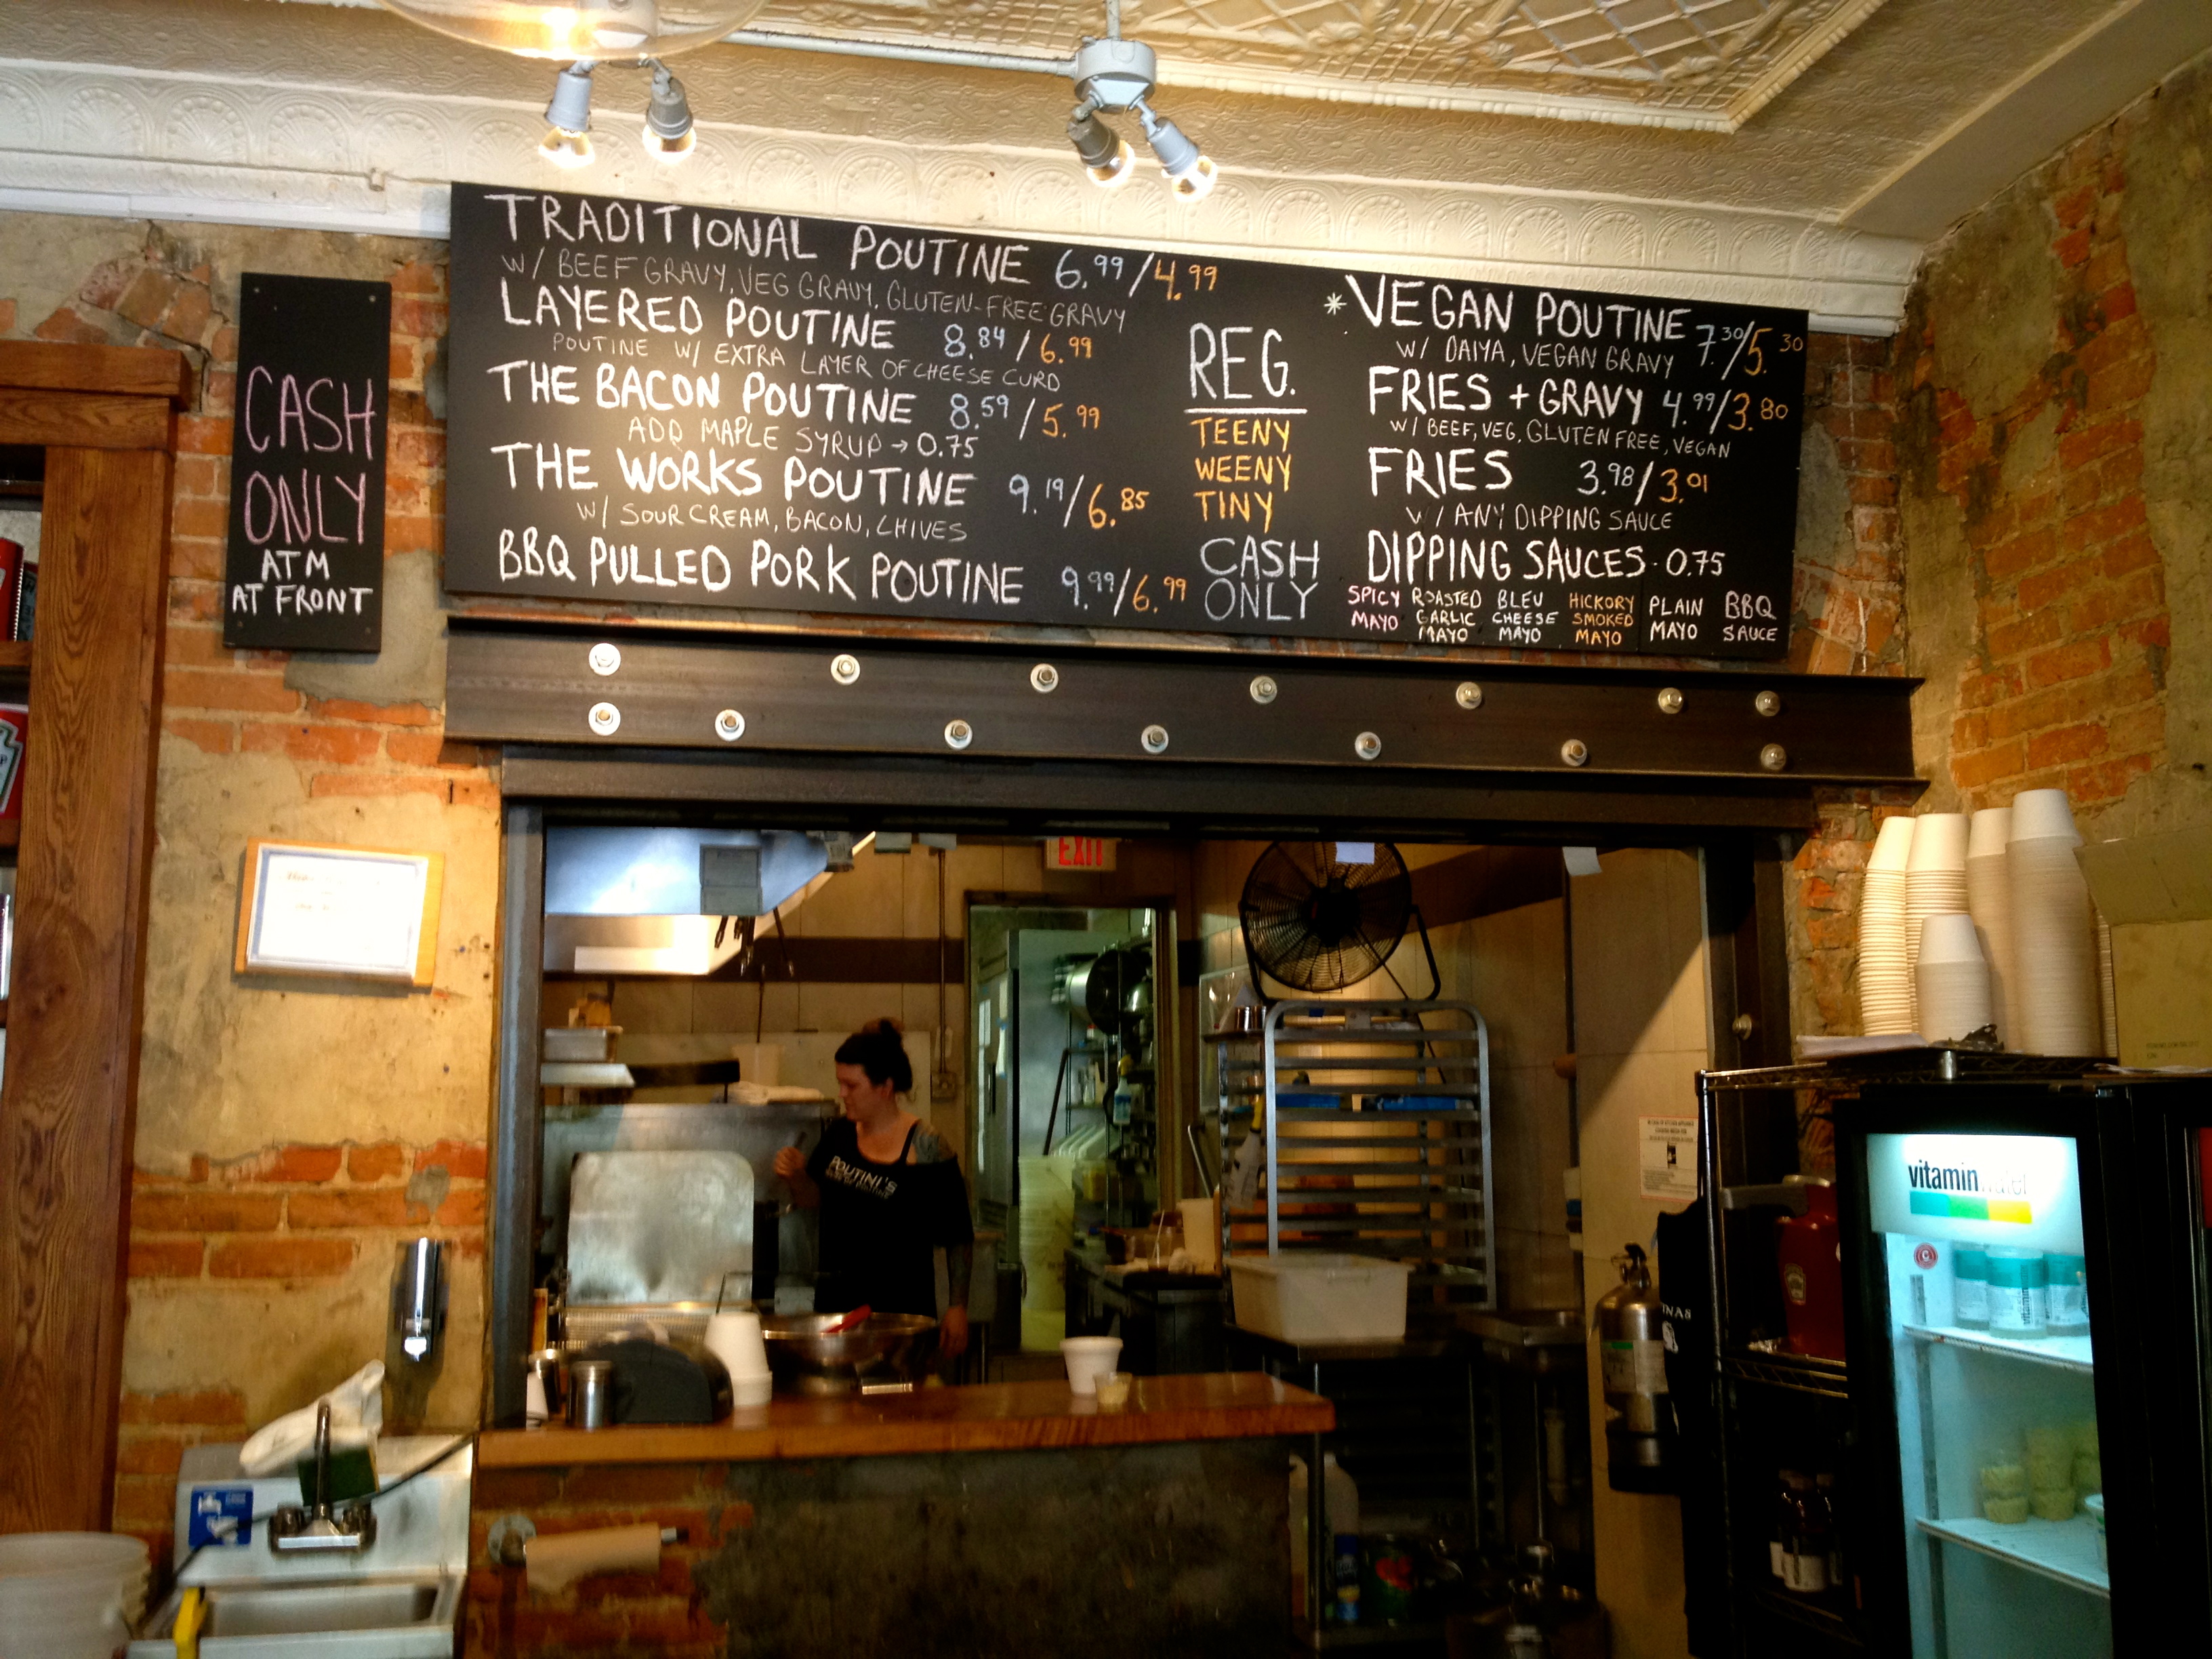 CASH
ONLY
ATM
AT FRONT
TRADITIONAL POUTINE 6.99/4.99
W/ BEEF GRAVY, VEG GRAVY, GLUTEN-FREE GRAVY
LAYERED POUTINE 8.84/6.99
POUTINE W/ EXTRA LAYER OF CHEESE CURD
THE BACON POUTINE 8.59/5.99
ADD MAPLE SYRUP → 0.75
THE WORKS POUTINE 9.19/6.85
W/ SOUR CREAM, BACON, CHIVES
BBQ PULLED PORK POUTINE 9.99/6.99
REG.
TEENY
WEENY
TINY
CASH
ONLY
*VEGAN POUTINE 7.30/5.30
W/ DAIYA, VEGAN GRAVY
FRIES + GRAVY 4.99/3.80
W/ BEEF, VEG, GLUTEN FREE, VEGAN
FRIES 3.98/3.01
W/ ANY DIPPING SAUCE
DIPPING SAUCES - 0.75
SPICY MAYO
ROASTED GARLIC MAYO
BLEU CHEESE MAYO
HICKORY SMOKED MAYO
PLAIN MAYO
BBQ SAUCE
EXIT
POUTINI'S
vitaminwater